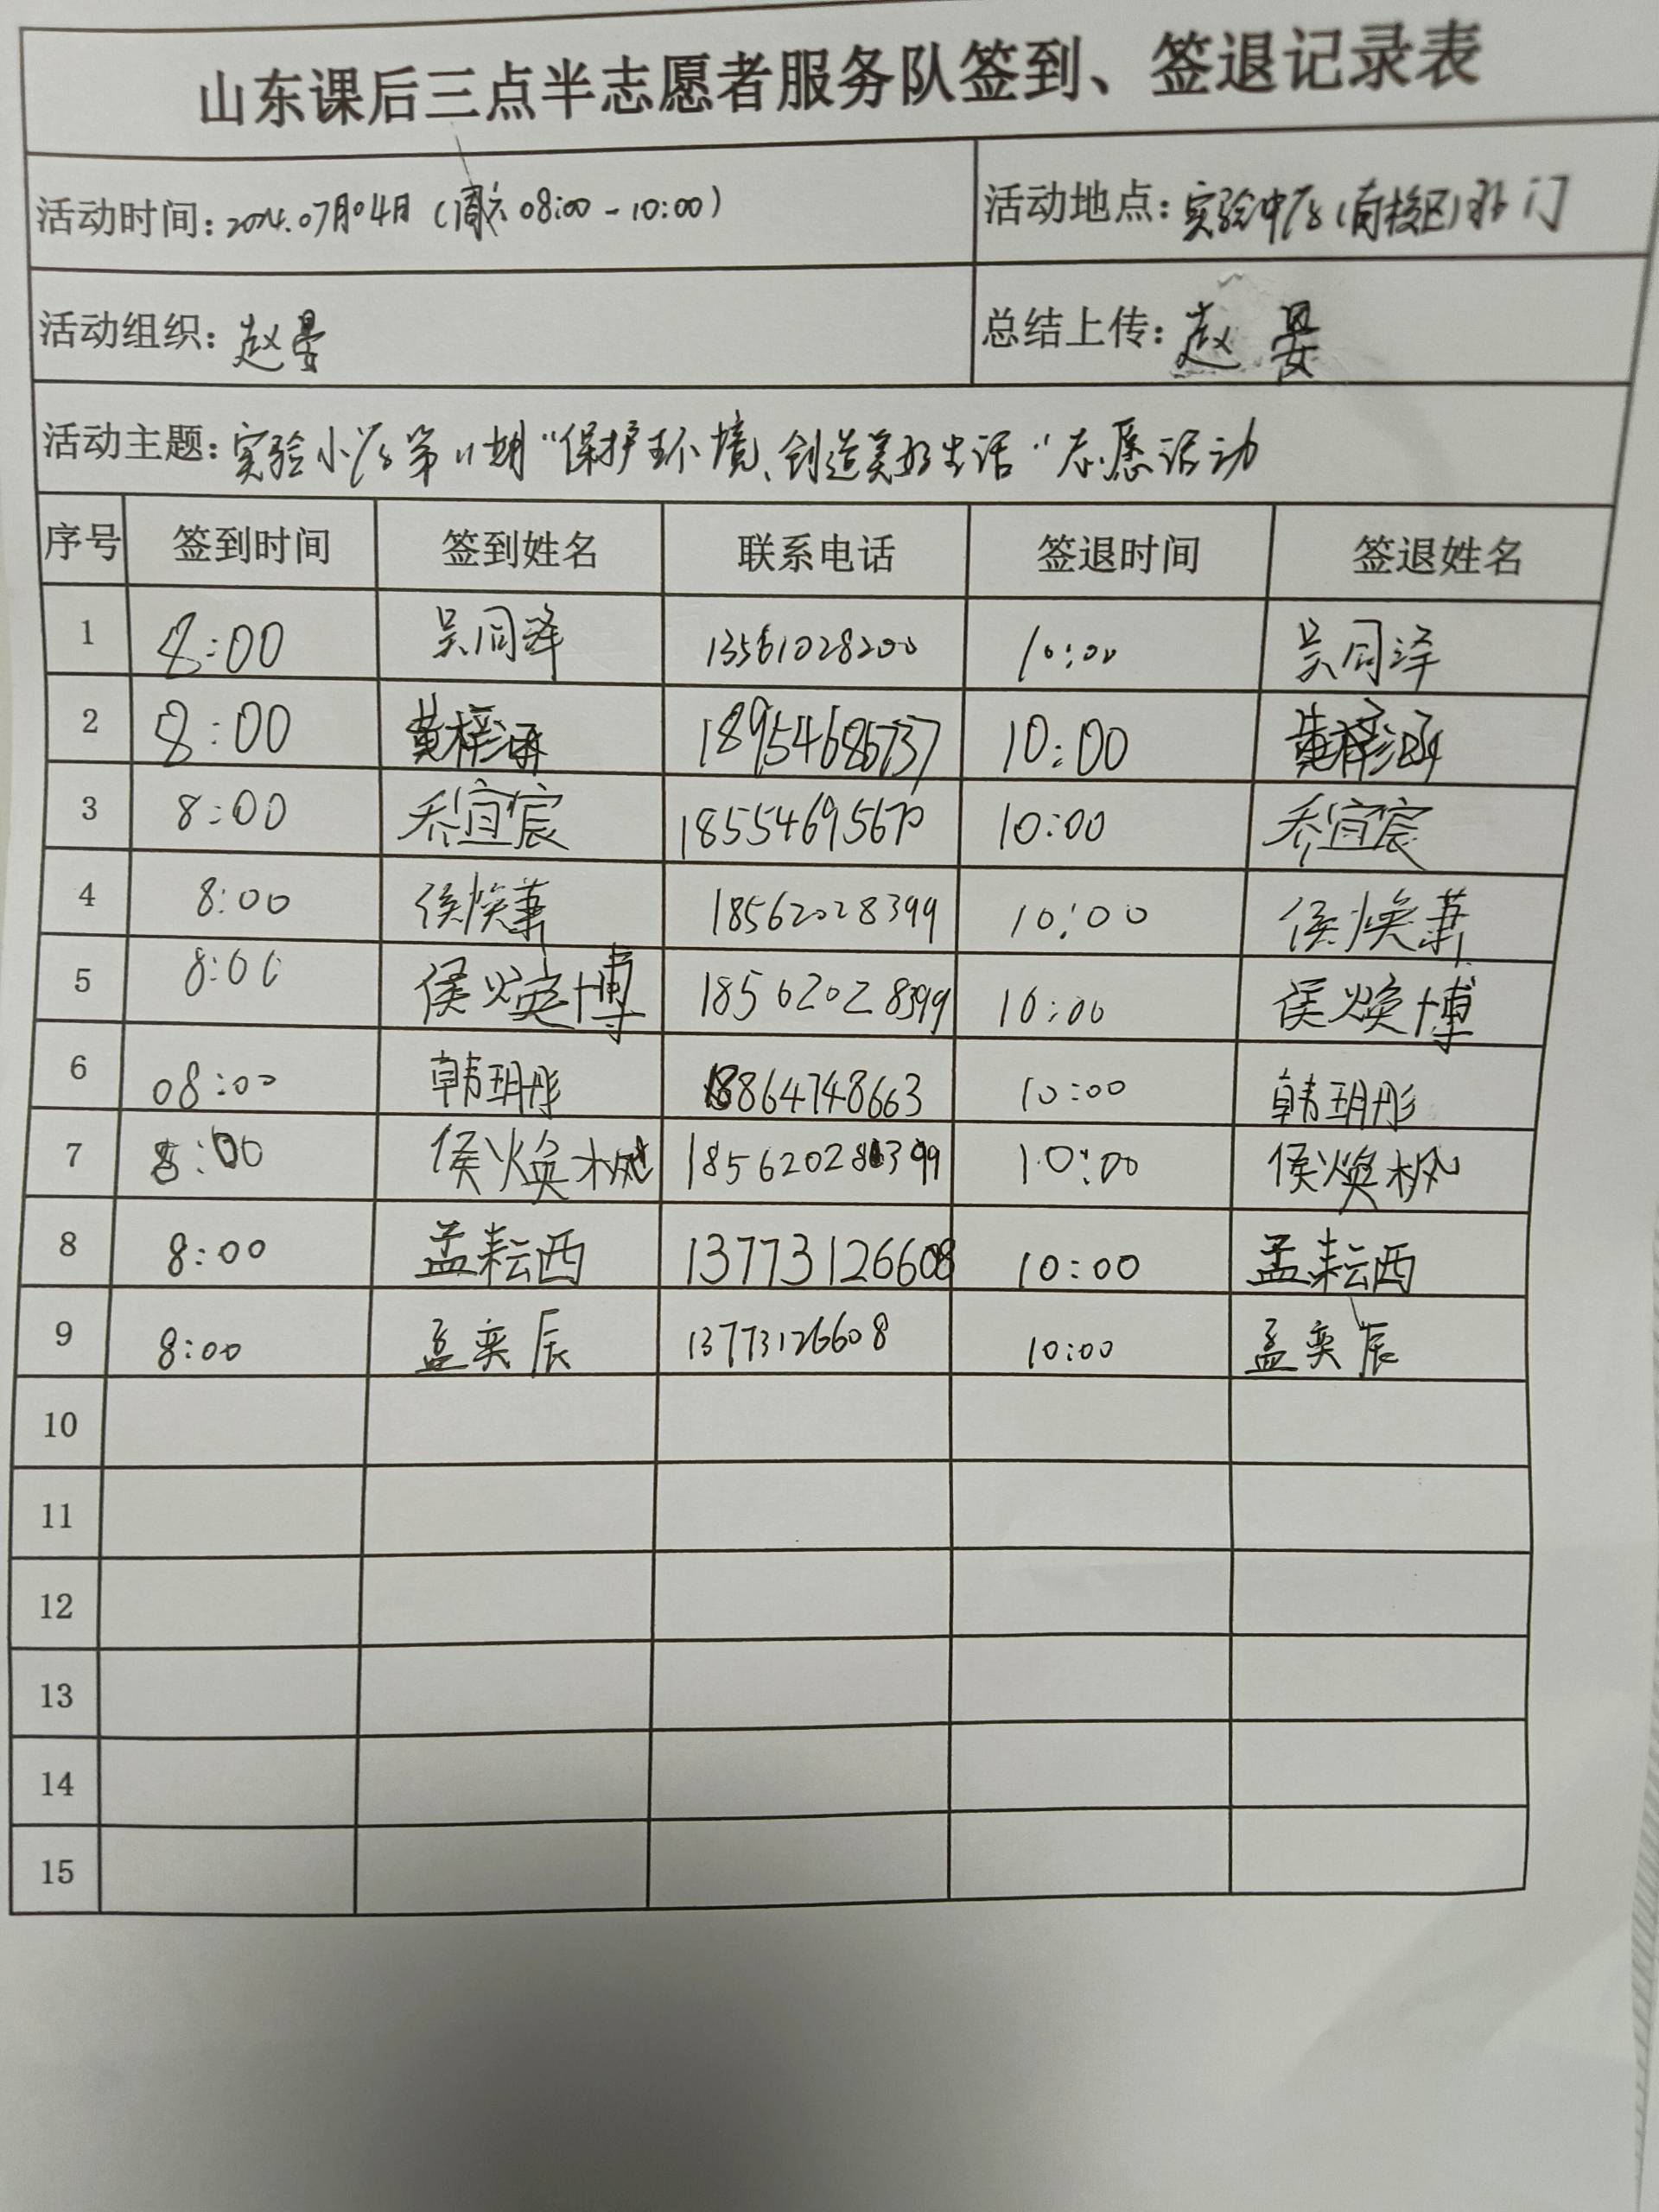 山东课后三点半志愿者服务队签到、签退记录表
活动时间：2024.07月04日（周六 08:00-10:00） 活动地点：实验中学（南校区）北门
活动组织：赵晏 总结上传：赵晏
活动主题：实验小学第11期“保护环境、创造美好生活”志愿活动
序号 签到时间 签到姓名 联系电话 签退时间 签退姓名
1 8:00 吴同泽 13561028200 10:00 吴同泽
2 8:00 黄梓涵 18954686737 10:00 黄梓涵
3 8:00 乔宜宸 10:00 乔宜宸
4 8:00 侯焕萧 18562028399 10:00 侯焕萧
5 8:00 侯焕博 18562028399 10:00 侯焕博
6 08:00 韩玥彤 18864748663 10:00 韩玥彤
7 8:00 侯焕枫 18562028399 10:00 侯焕枫
8 8:00 孟耘西 13773126608 10:00 孟耘西
9 8:00 孟奕辰 13773126608 10:00 孟奕辰
10
11
12
13
14
15